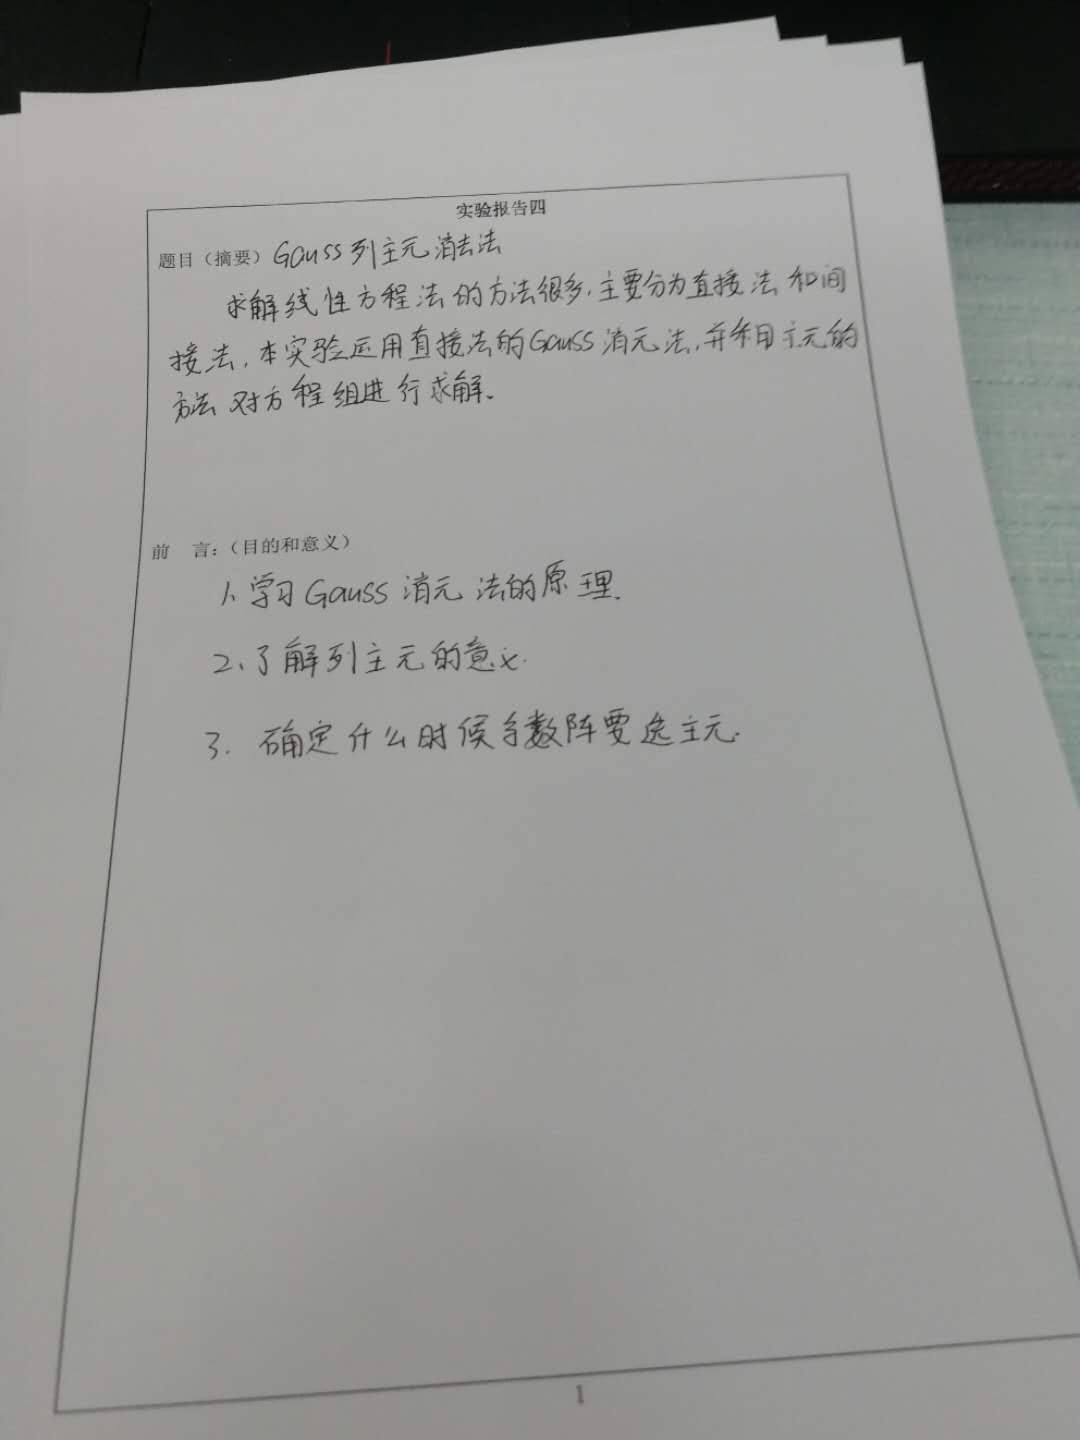 实验报告四
题目（摘要）Gauss列主元消去法
求解线性方程法的方法很多，主要分为直接法和间
接法，本实验运用直接法的Gauss消元法，并采用主元的
方法对方程组进行求解。
前 言：（目的和意义）
1、学习Gauss消元法的原理.
2、了解列主元的意义.
3. 确定什么时候系数阵要选主元.
1